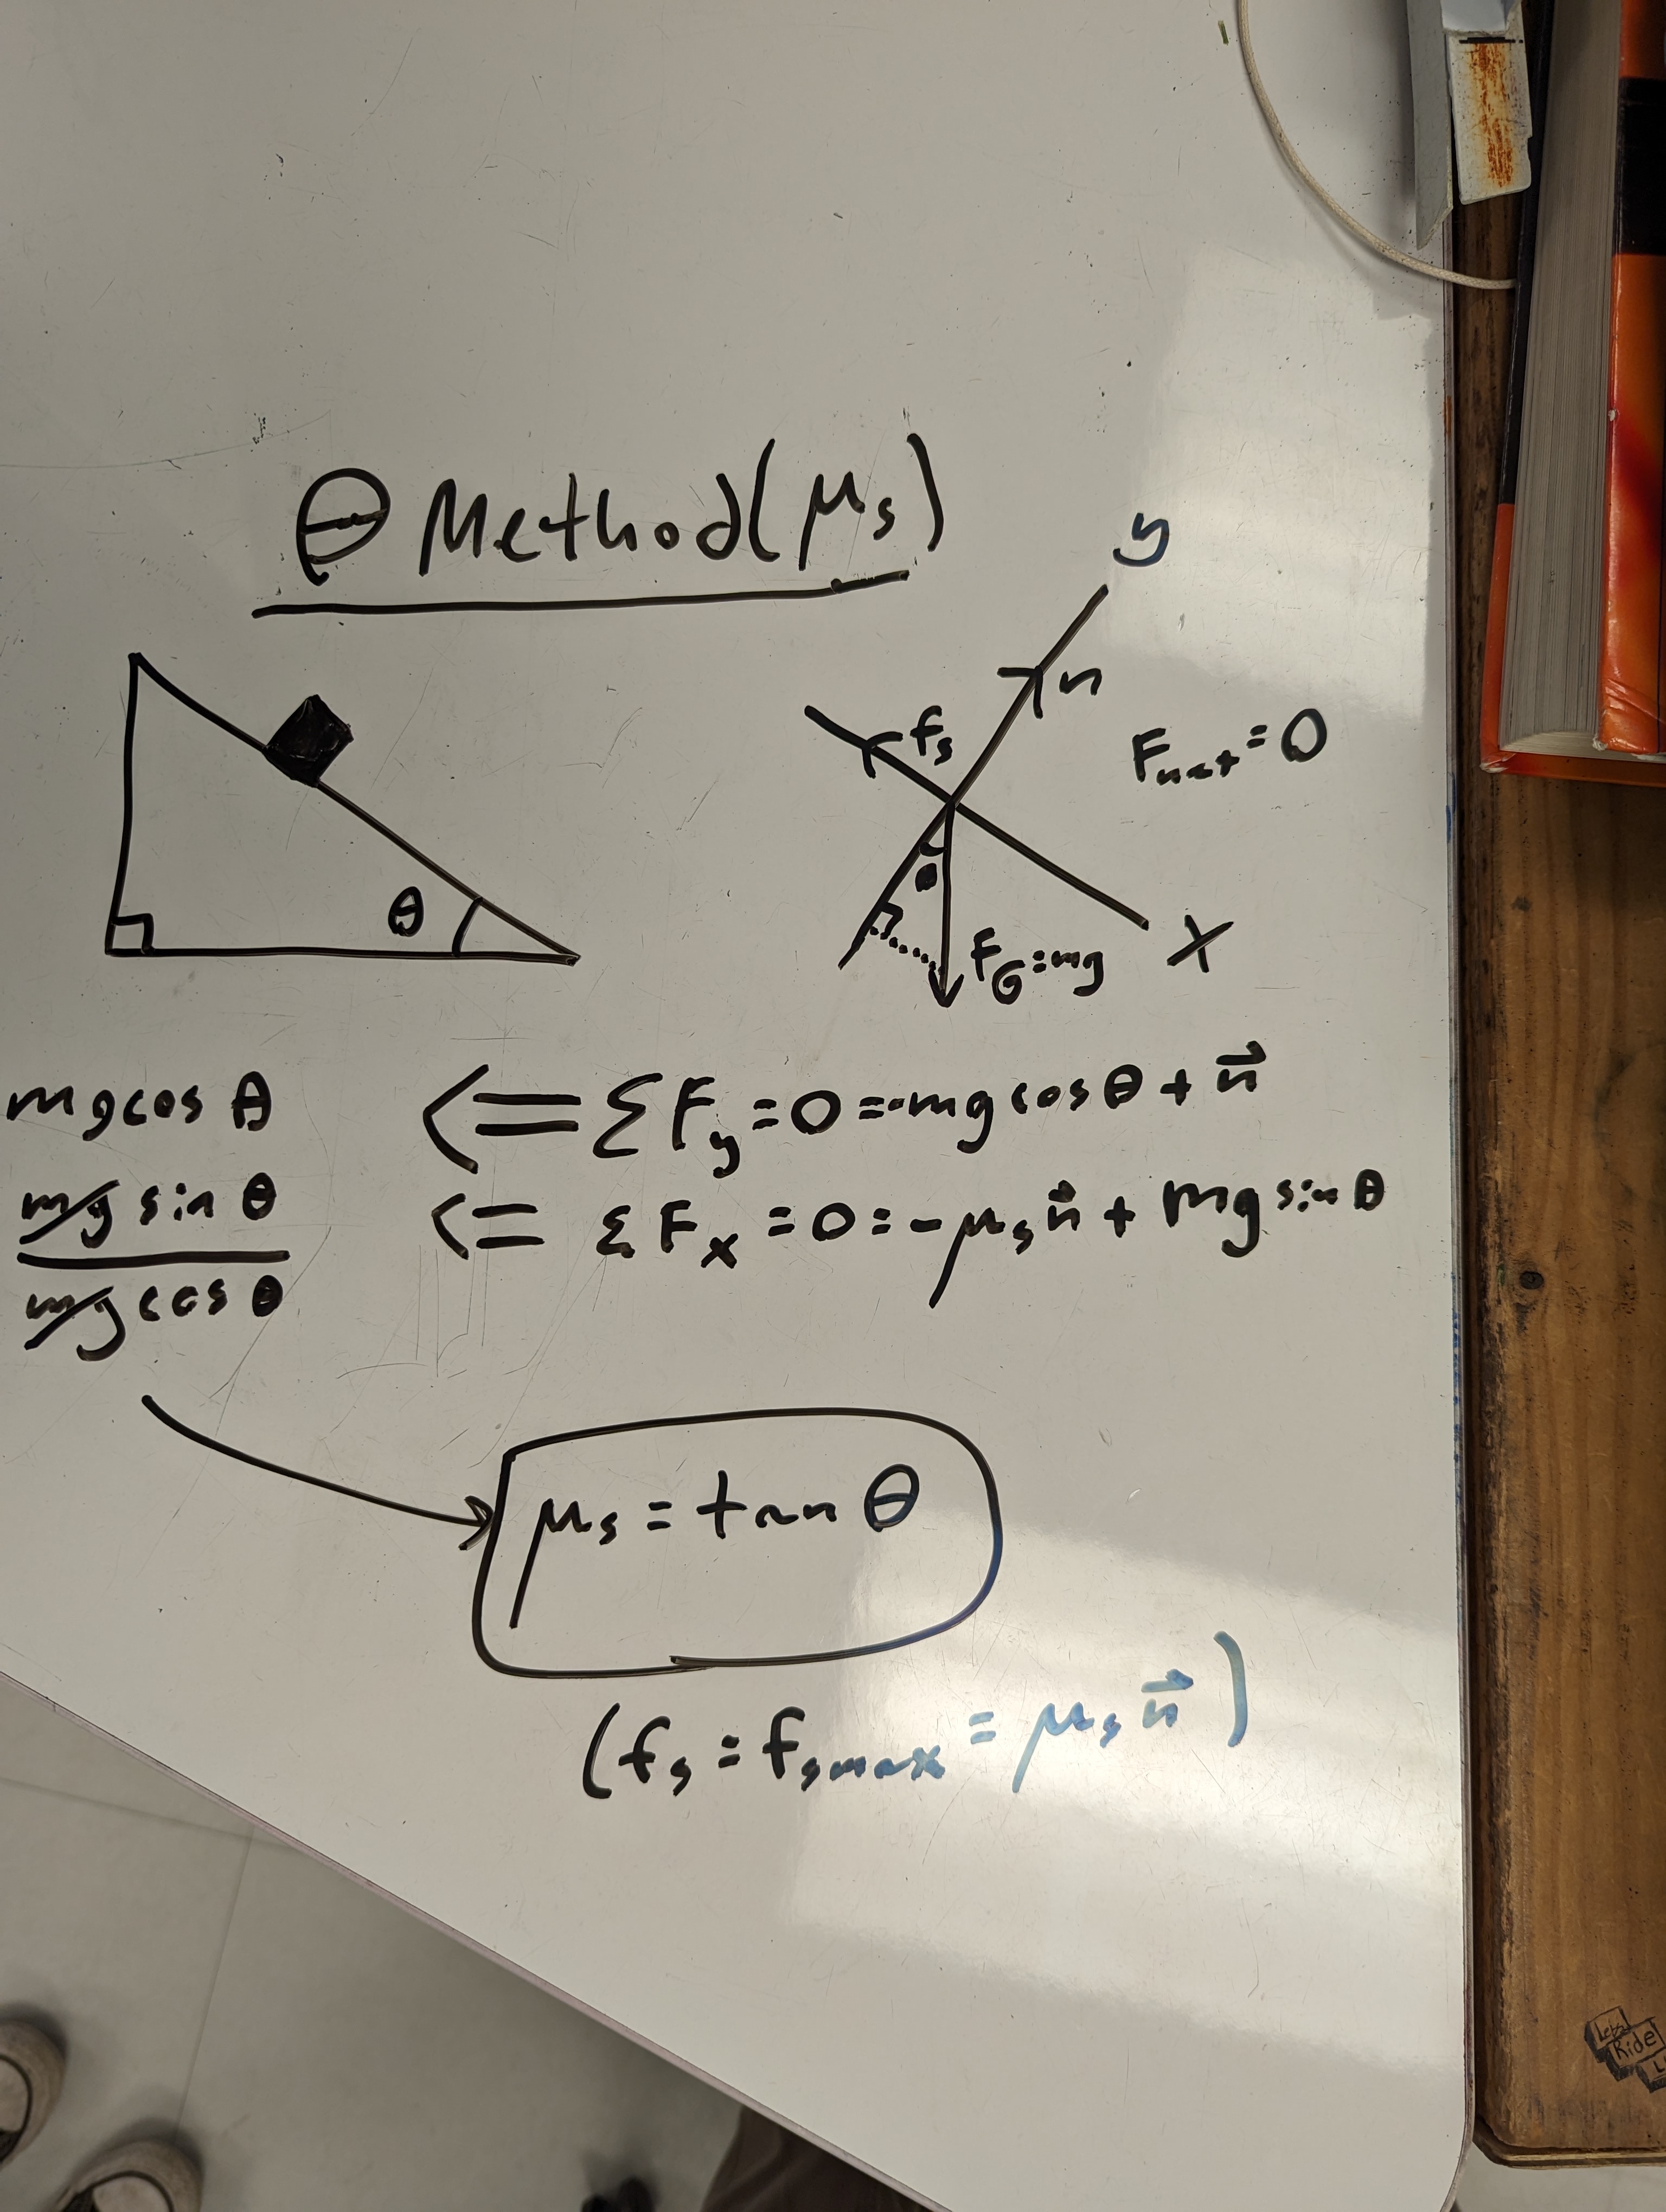 θ Method(μs)
y
n
fs
Fnet = 0
θ
θ
FG = mg
x
mg cos θ <= ΣFy = 0 = -mg cos θ + n⃗
mg sin θ <= ΣFx = 0 = -μs n⃗ + mg sin θ
mg cos θ
μs = tan θ
(fs = fsmax = μs n⃗)
Lets
Ride